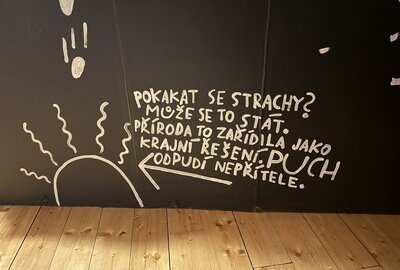 POKAKAT SE STRACHY?
MŮŽE SE TO STÁT.
PŘÍRODA TO ZAŘÍDILA JAKO
KRAJNÍ ŘEŠENÍ. PUCH
ODPUDÍ NEPŘÍTELE.